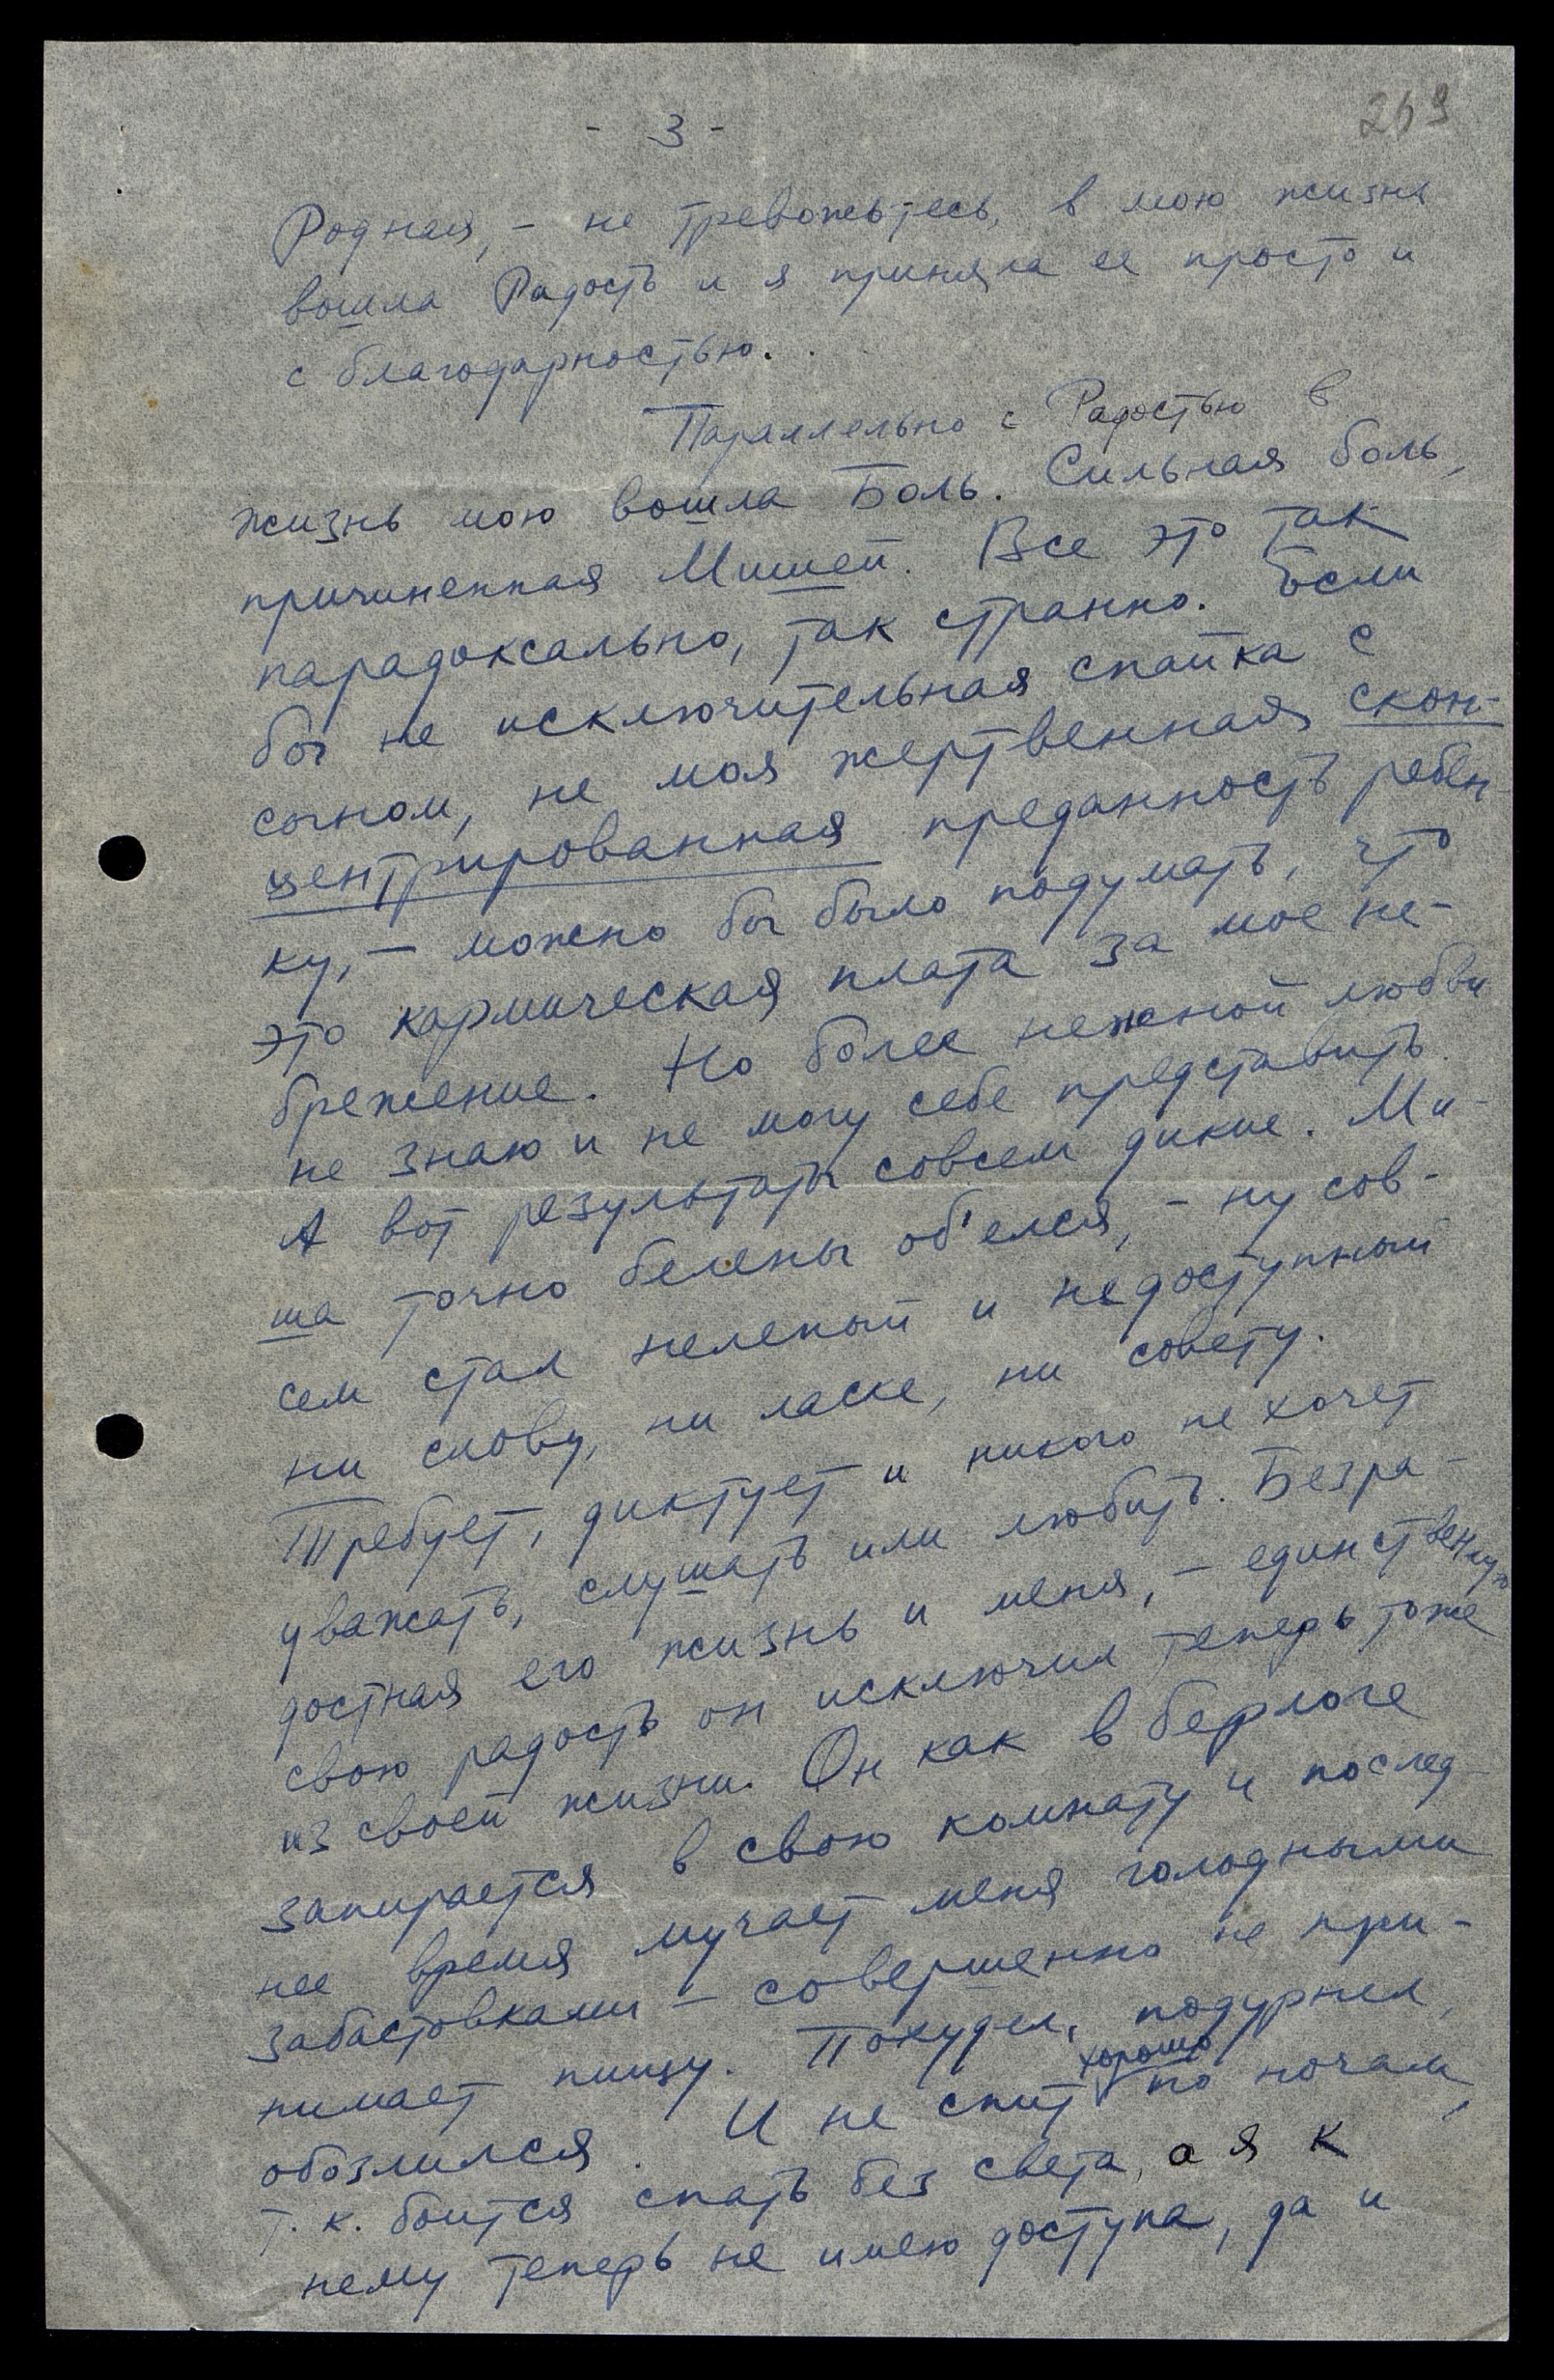 - 3 -
269
Родная, - не тревожьтесь, в мою жизнь
вошла Радость и я приняла ее просто и
с благодарностью. .
Параллельно с Радостью в
жизнь мою вошла Боль. Сильная боль,
причиненная Мишей. Все это так
парадоксально, так странно. Если
бы не исключительная спайка с
сыном, не моя жертвенная скон-
центрированная преданность ребен-
ку, - можно бы было подумать, что
это кармическая плата за мое не-
брежение. Но более нежной любви
не знаю и не могу себе представить.
А вот результаты совсем дикие. Ми-
ша точно белены об'елся, - ну сов-
сем стал нелепый и недоступный
ни слову, ни ласке, ни совету.
Требует, диктует и никого не хочет
уважать, слушать или любить. Безра-
достная его жизнь и меня, - единственную
свою радость он исключил теперь тоже
из своей жизни. Он как в берлоге
запирается в свою комнату и послед-
нее время мучает меня голодными
забастовками - совершенно не при-
нимает пищу. Похудел, подурнел,
обозлился. И не спит хорошо по ночам,
т. к. боится спать без света, а я к
нему теперь не имею доступа, да и